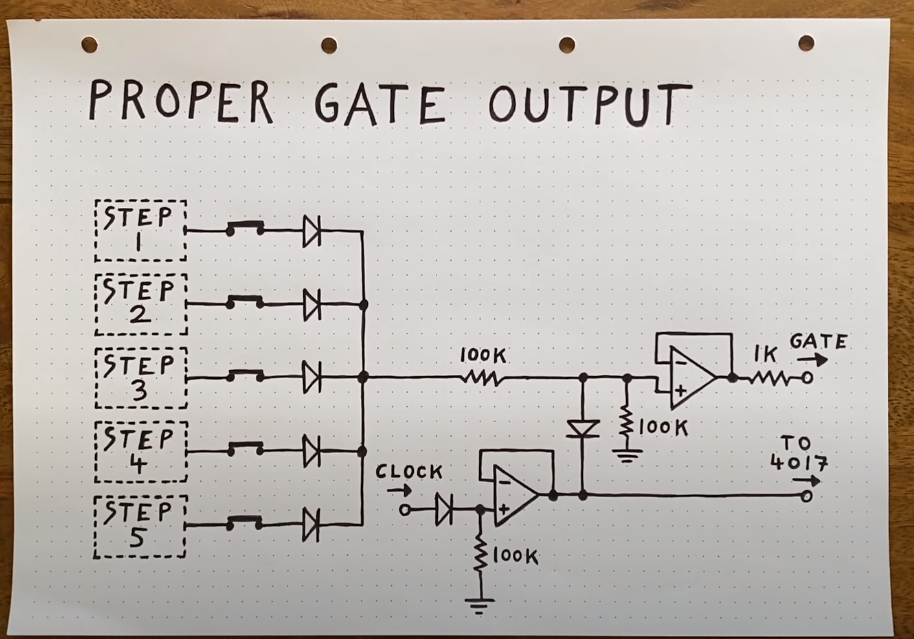 PROPER GATE OUTPUT
STEP
1
STEP
2
STEP
3
STEP
4
STEP
5
100K
1K
GATE
-
+
100K
CLOCK
-
+
100K
TO
4017